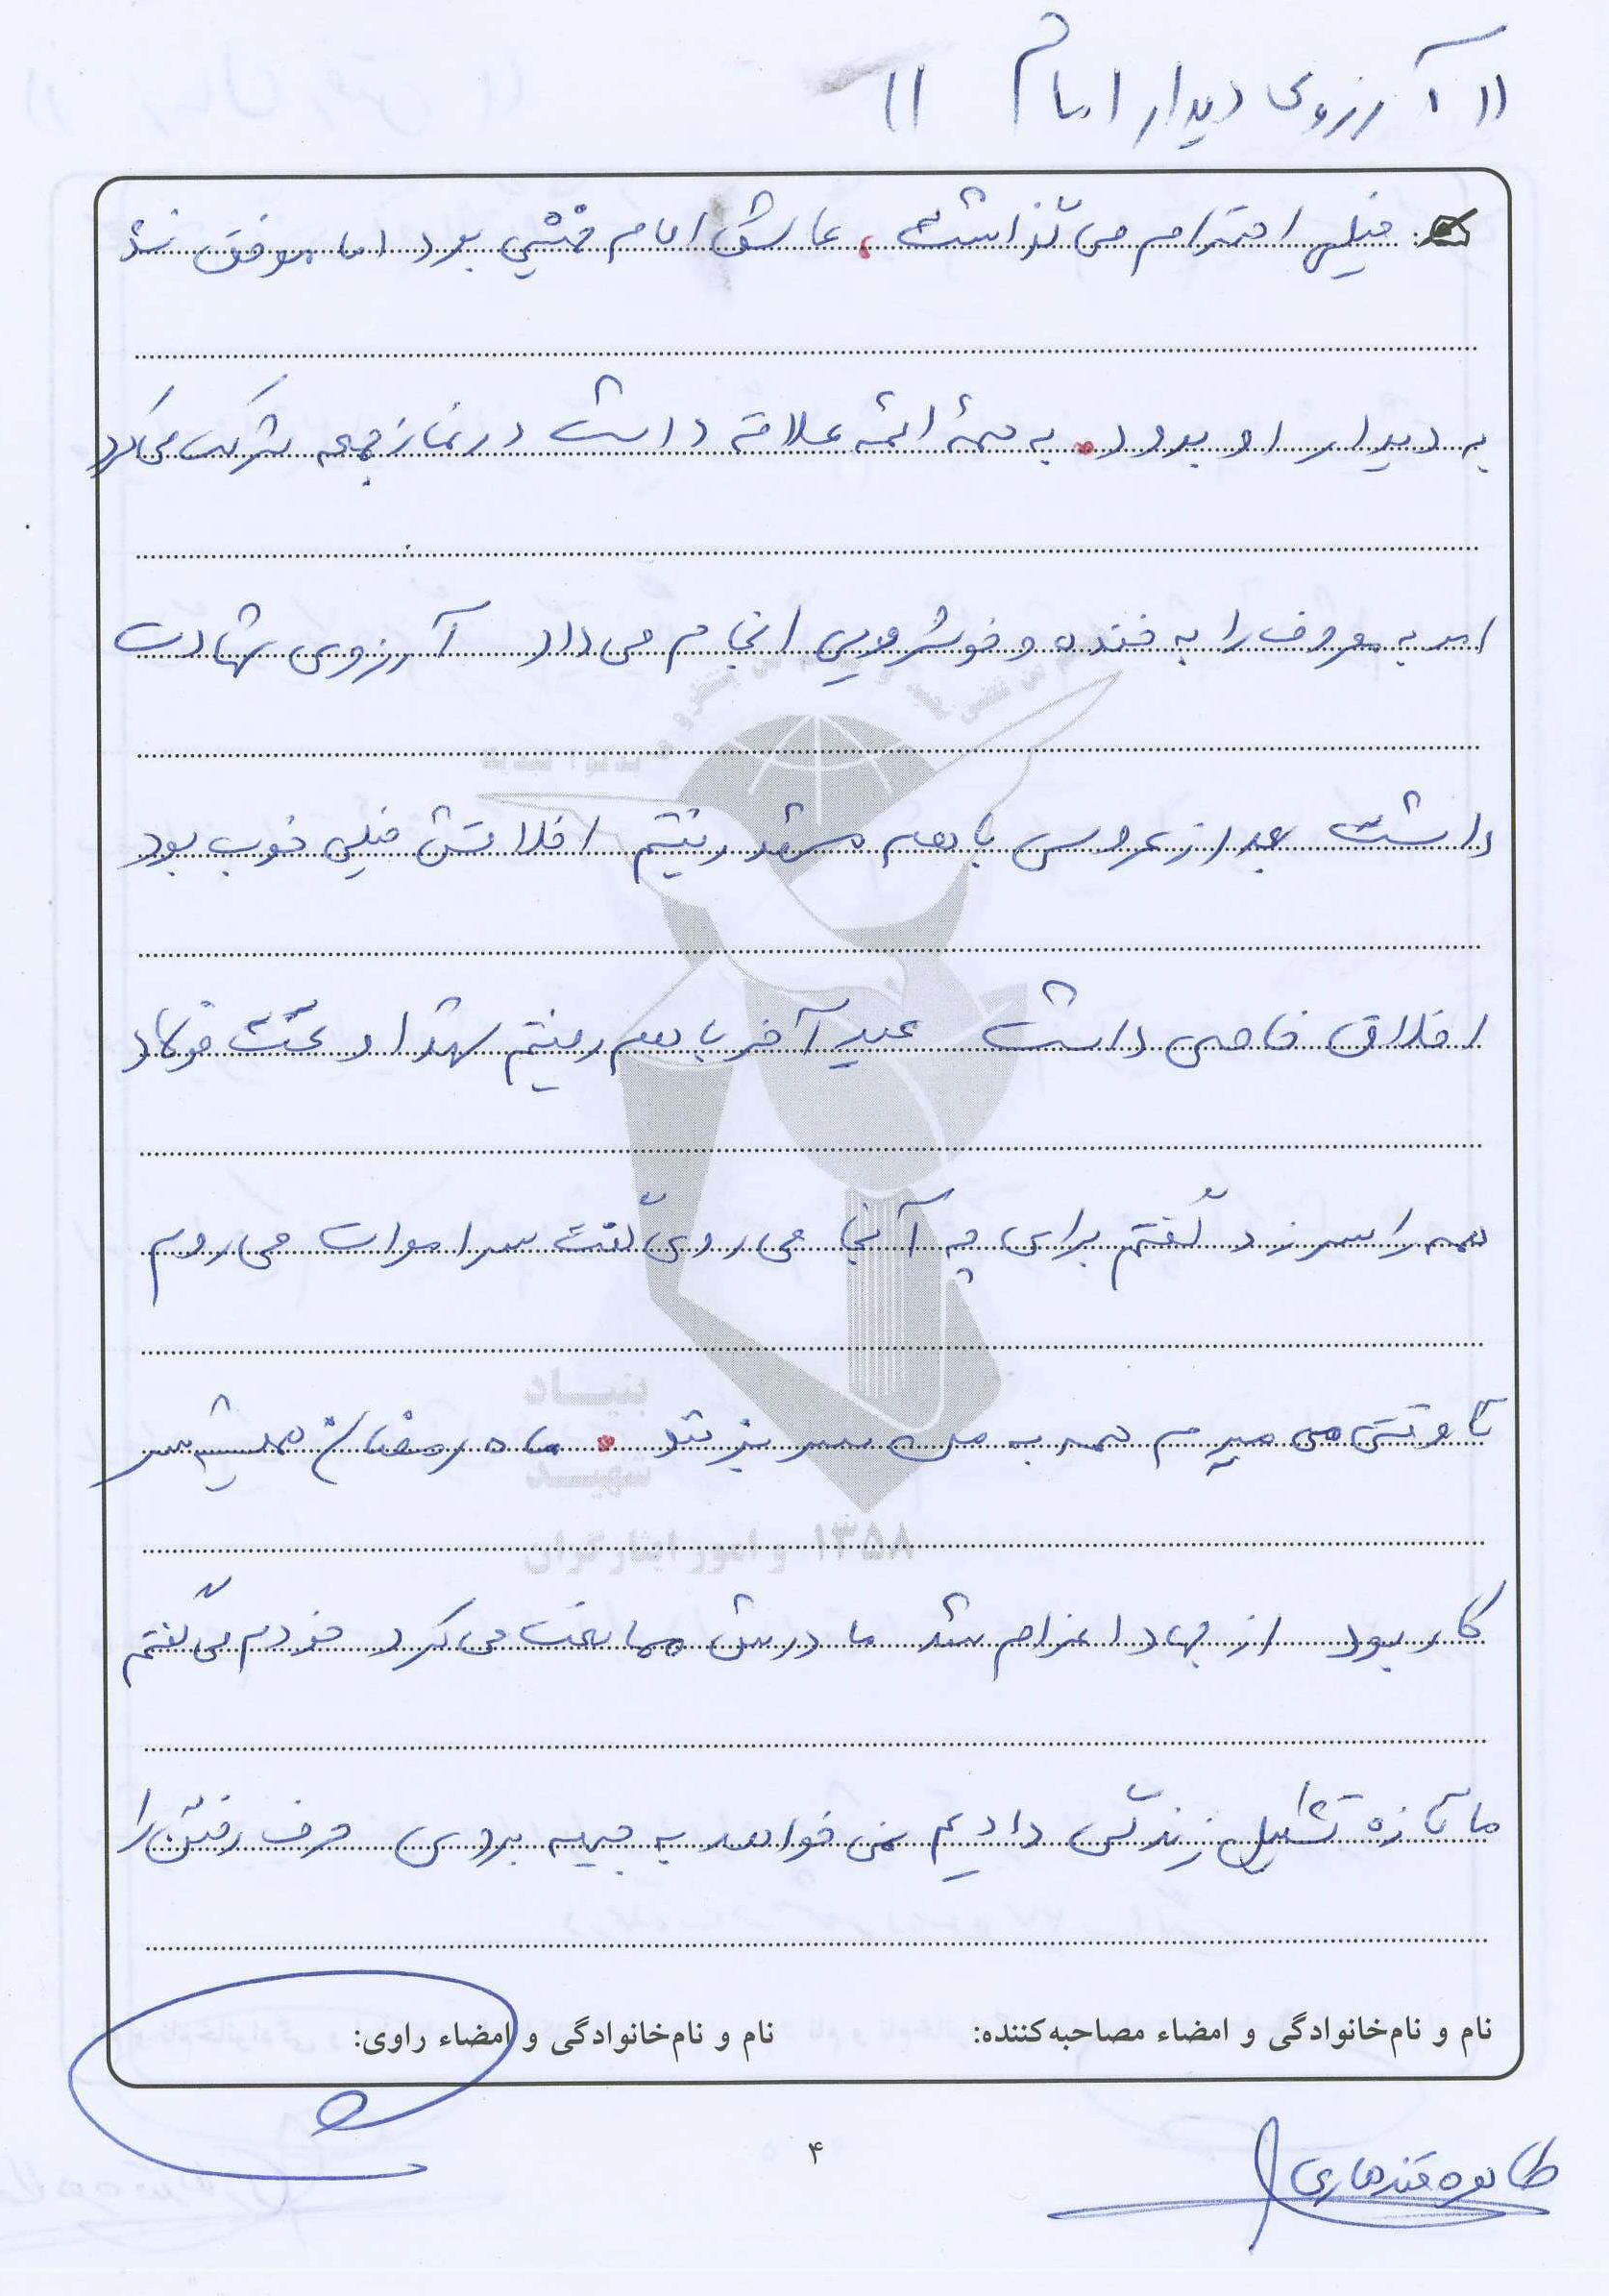 «آرزوی دیدار امام»
خیلی احترام می گذاشت، عاشق امام خمینی بود اما موفق نشد
به دیدار او برود. به همهٔ ائمه علاقه داشت در نماز جمعه شرکت می کرد
امر به معروف را به خنده و خوشرویی انجام می داد آرزوی شهادت
داشت بعد از عروسی با هم مشهد رفتیم اخلاقش خیلی خوب بود
اخلاق خاصی داشت عید آخر با هم رفتیم شهدا و تخت فولاد
همه را سر زد گفتم برای چه آنجا می روی گفت سر اموات می روم
تا وقتی می میرم همه به من سر بزنند. ماه رمضان همیشه سر
کار بود از جهاد اعزام شد مادرش ممانعت می کرد خودم می گفتم
ما تازه تشکیل زندگی دادیم نمی خواهد به جبهه بروی حرف رفتن را
نام و نام‌خانوادگی و امضاء مصاحبه‌کننده: نام و نام‌خانوادگی و امضاء راوی:
طاهره قندهاری
۴
بنیاد
شهید
و امور ایثارگران ۱۳۵۸